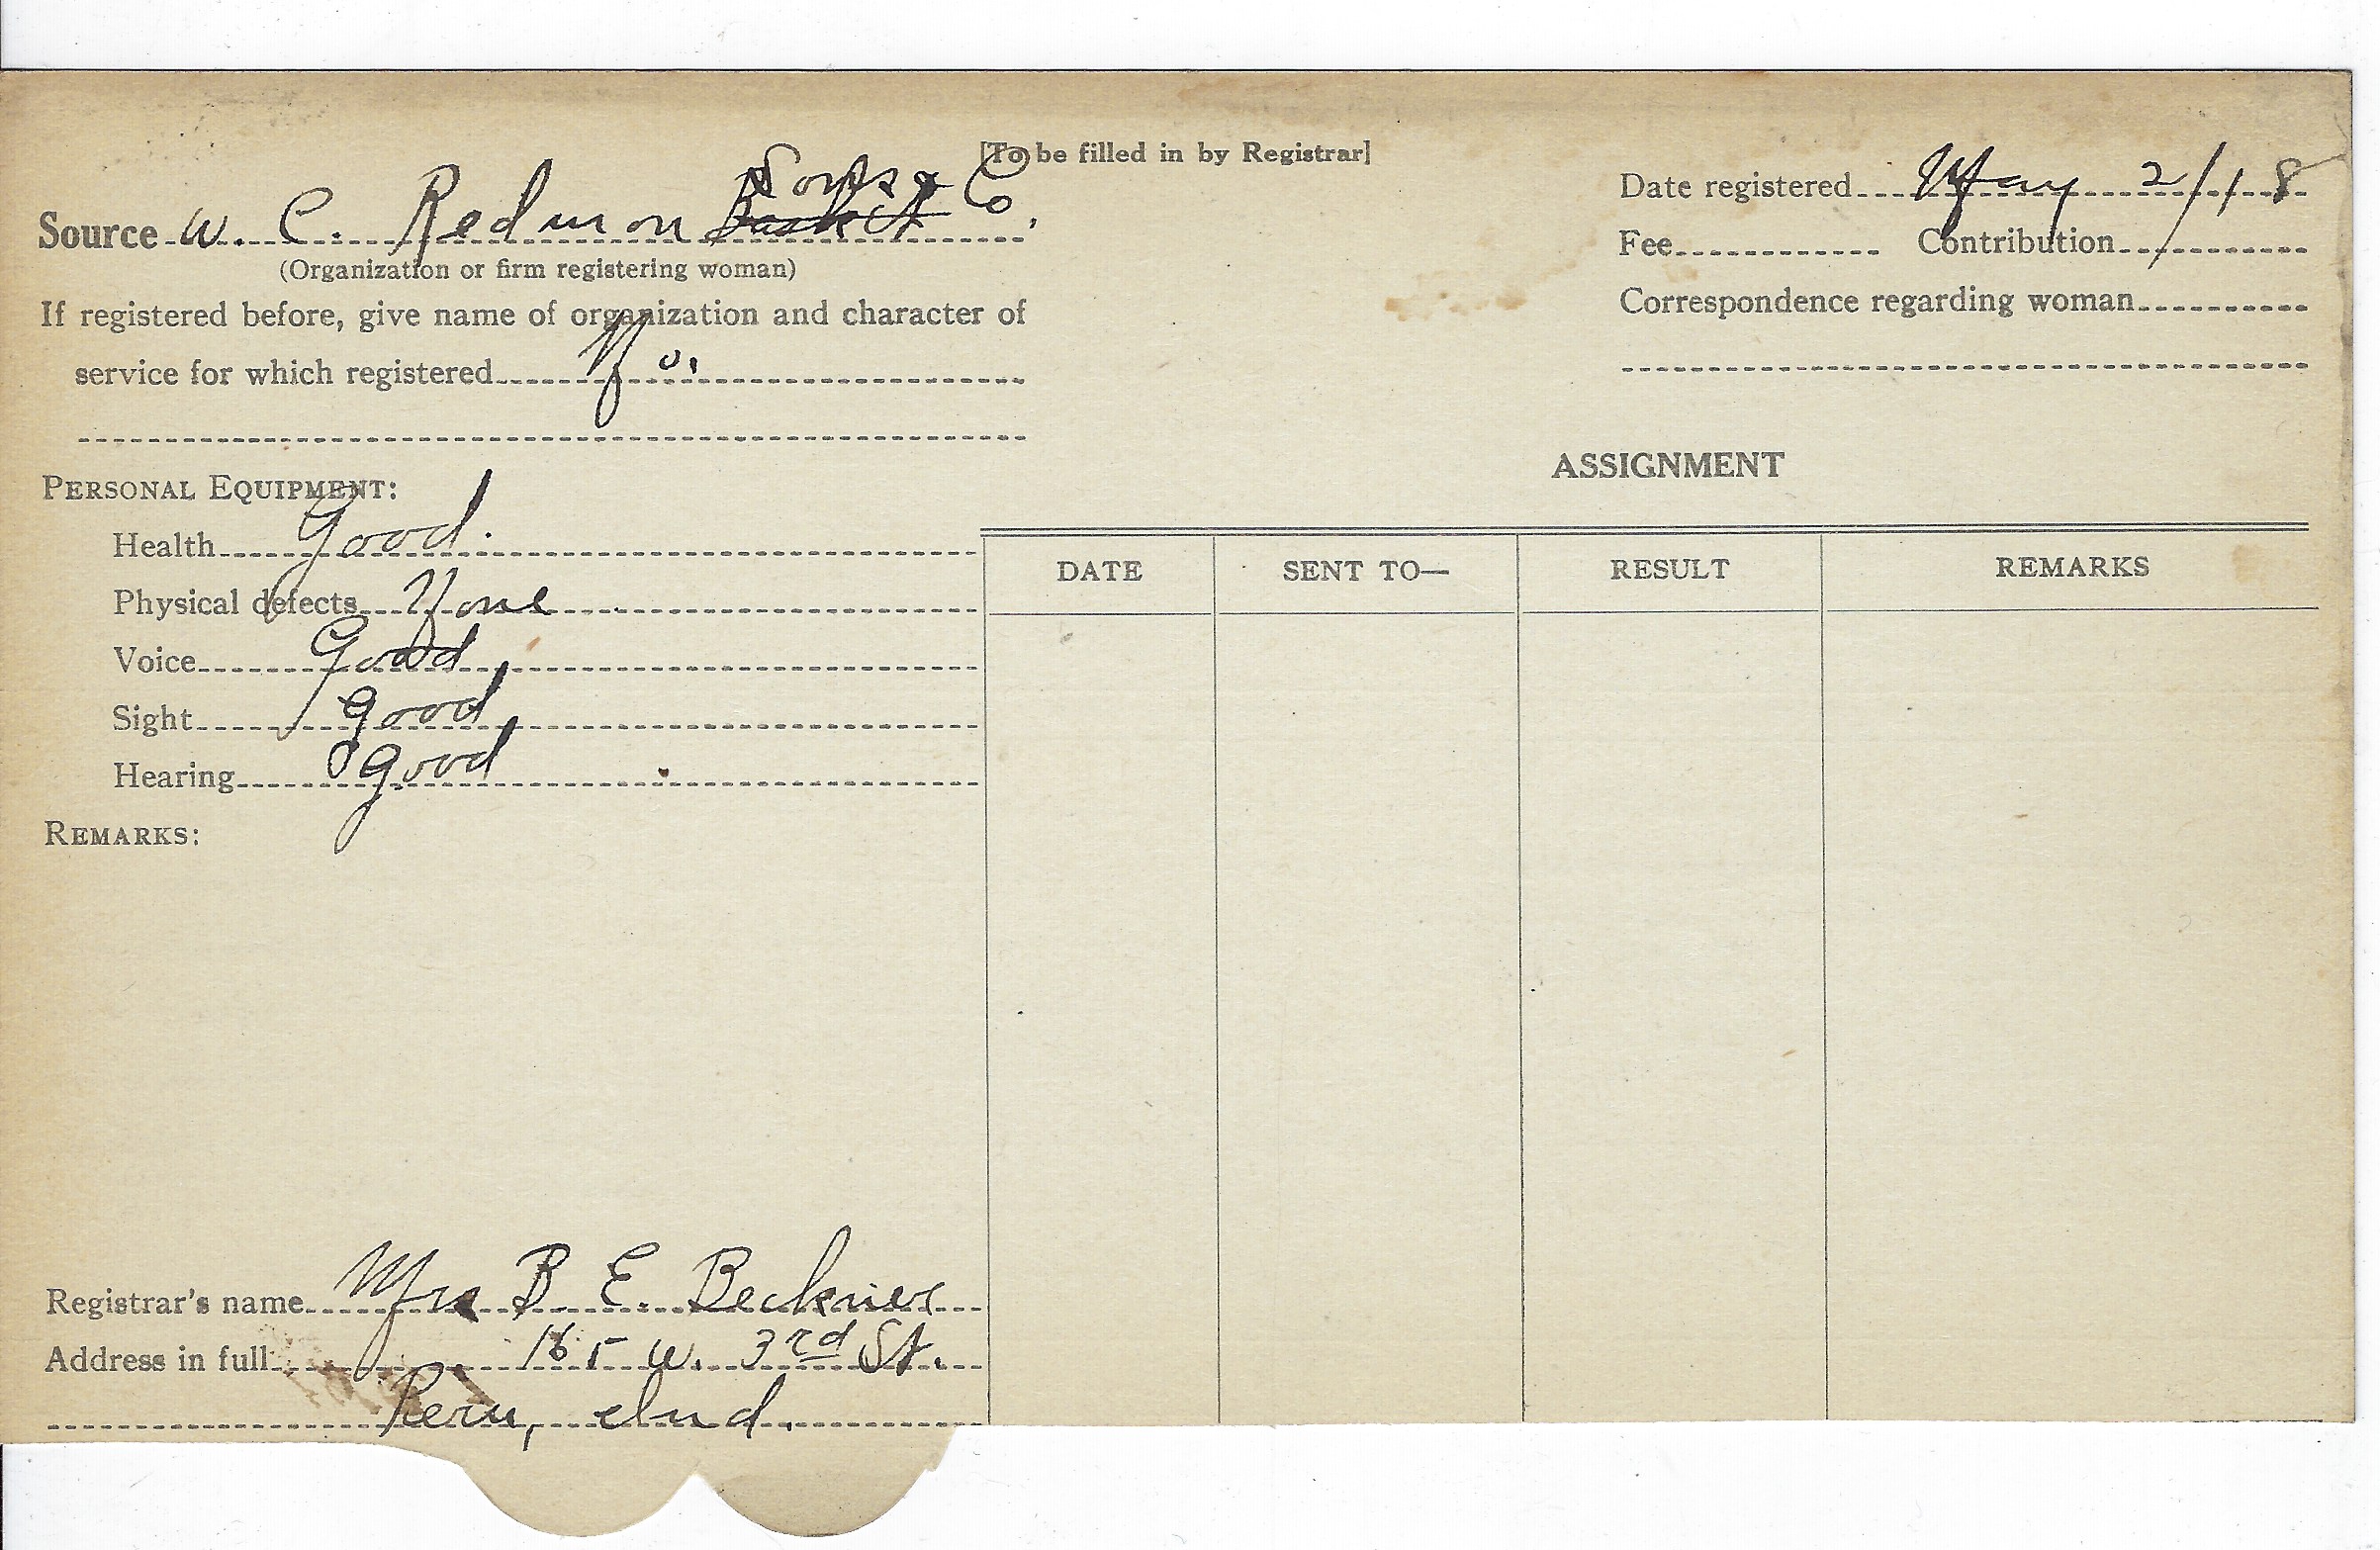 [To be filled in by Registrar]
Source W. C. Redmon Basket Sons & Co.
(Organization or firm registering woman)
If registered before, give name of organization and character of
service for which registered No.
PERSONAL EQUIPMENT:
Health Good.
Physical defects None
Voice Good
Sight good
Hearing good
REMARKS:
Registrar's name Mrs B. E. Beckner
Address in full 165 W. 3rd St.
Peru, Ind.
Date registered May 2/18
Fee Contribution
Correspondence regarding woman
ASSIGNMENT
DATE SENT TO— RESULT REMARKS